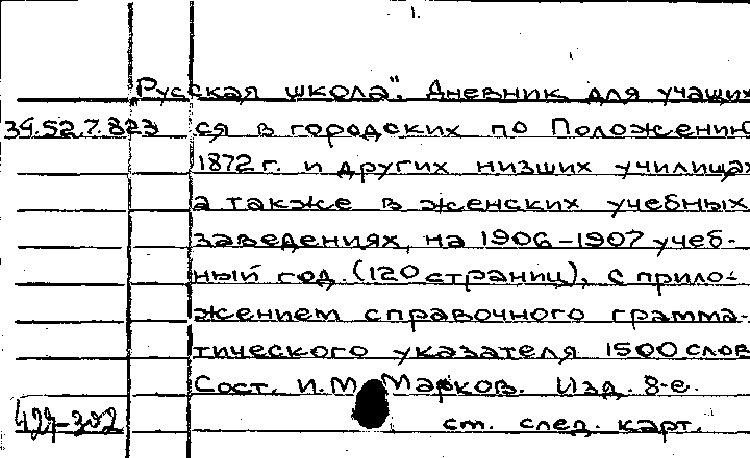 1.
Русская школа". Дневник для учащих
34.52.7.823 ся в городских по Положению
1872 г. и других низших училищах
а также в женских учебных
заведениях, на 1906-1907 учеб-
ный год. (120 страниц), с прило-
жением справочного грамма-
тического указателя 1500 слов
Сост. И.М. Марков. Изд. 8-е.
ст. след. карт.